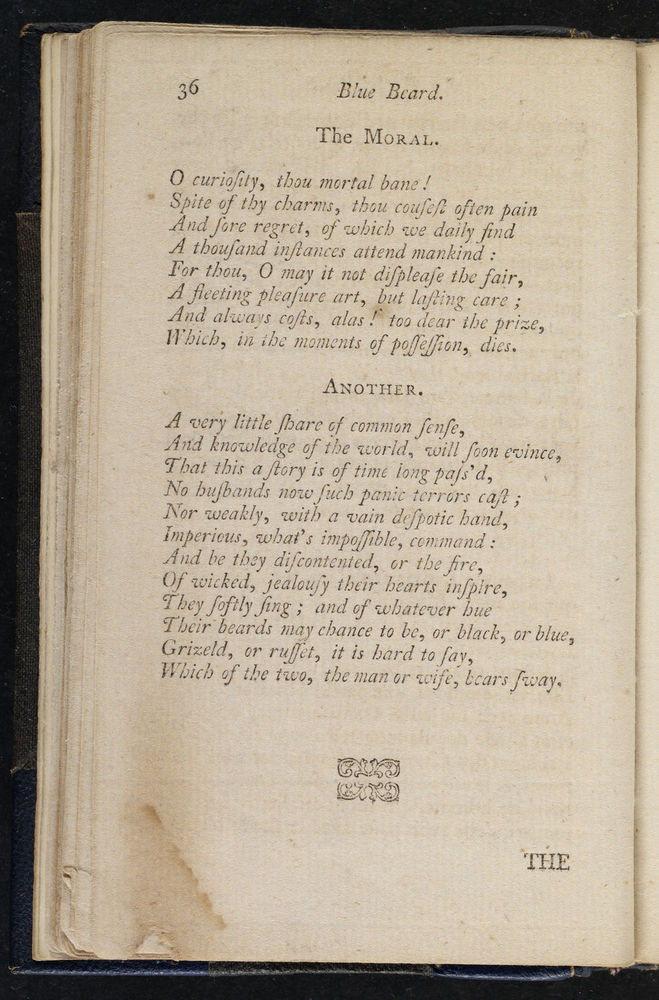 36 Blue Beard.
The MORAL.
O curioſity, thou mortal bane!
Spite of thy charms, thou couſeſt often pain
And ſore regret, of which we daily find
A thouſand inſtances attend mankind :
For thou, O may it not diſpleaſe the fair,
A fleeting pleaſure art, but laſting care ;
And always coſts, alas ! too dear the prize,
Which, in the moments of poſſeſſion, dies.
ANOTHER.
A very little ſhare of common ſenſe,
And knowledge of the world, will ſoon evince,
That this a ſtory is of time long paſs'd,
No huſbands now ſuch panic terrors caſt ;
Nor weakly, with a vain deſpotic hand,
Imperious, what's impoſſible, command :
And be they diſcontented, or the fire,
Of wicked, jealouſy their hearts inſpire,
They ſoftly ſing ; and of whatever hue
Their beards may chance to be, or black, or blue,
Grizeld, or ruſſet, it is hard to ſay,
Which of the two, the man or wife, bears ſway.
THE